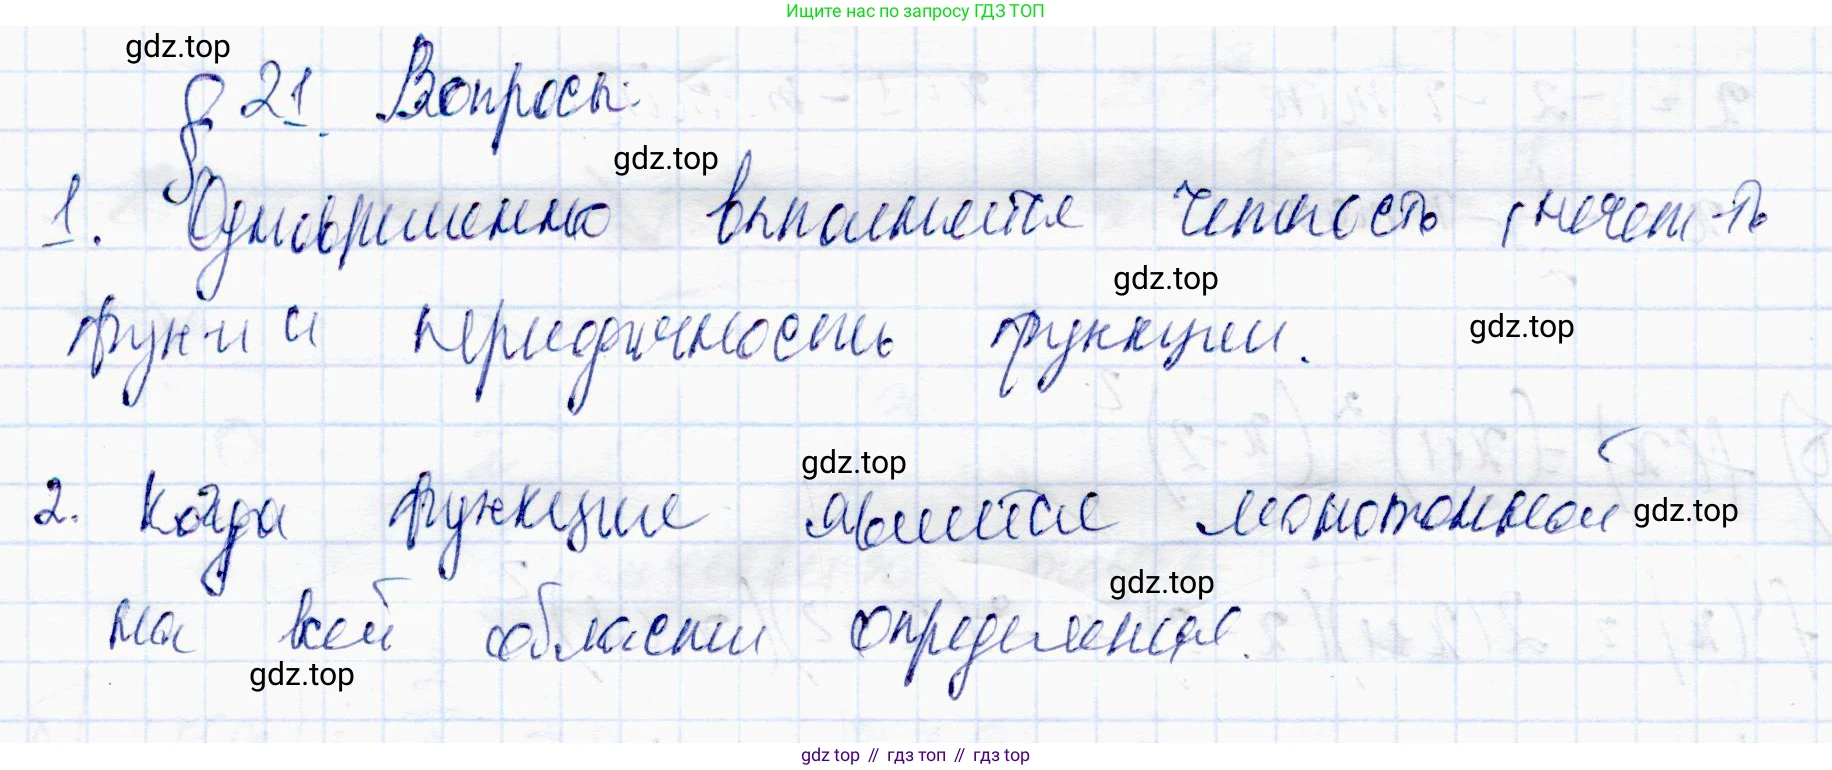 Ищите нас по запросу ГДЗ ТОП
gdz.top
§ 21. Вопросы:
gdz.top
1. Одновременно выполняется четность (нечет-ть
gdz.top
функ-и и периодичность функции.
gdz.top
gdz.top
2. Когда функция является монотонной
gdz.top
gdz.top
на всей области определения.
gdz.top
gdz.top // гдз топ // гдз top